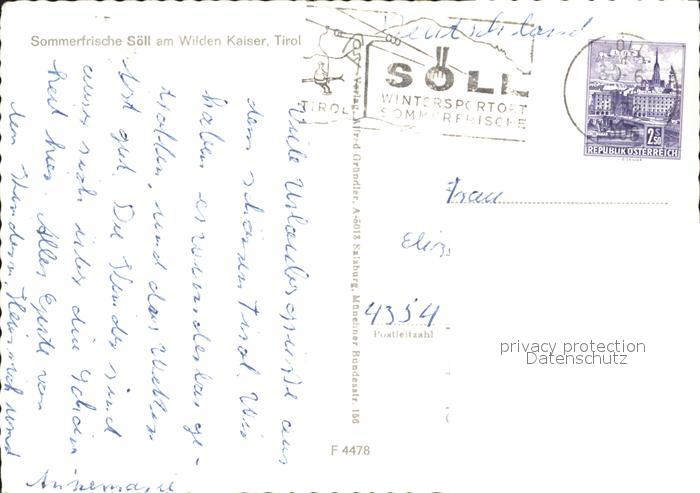 Sommerfrische Söll am Wilden Kaiser, Tirol
TIROL
SÖLL
WINTERSPORTORT
SOMMERFRISCHE
Deutschland
2.50
REPUBLIK ÖSTERREICH
Viele Urlaubsgrüße aus
dem schönen Tirol. Wir
haben es wunderbar ge-
troffen, und das Wetter
ist gut. Die Kinder sind
hier. Alles Gute von
den Kindern Heinrich und
Annemarie
Verlag Alfred Gründler, A-5013 Salzburg, Münchner Bundesstr. 156
Frau
4354
Postleitzahl
privacy protection
Datenschutz
F 4478